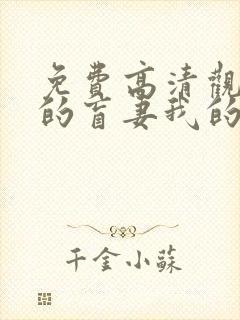 免费高清觀
的盲妻我的
千金小蘇